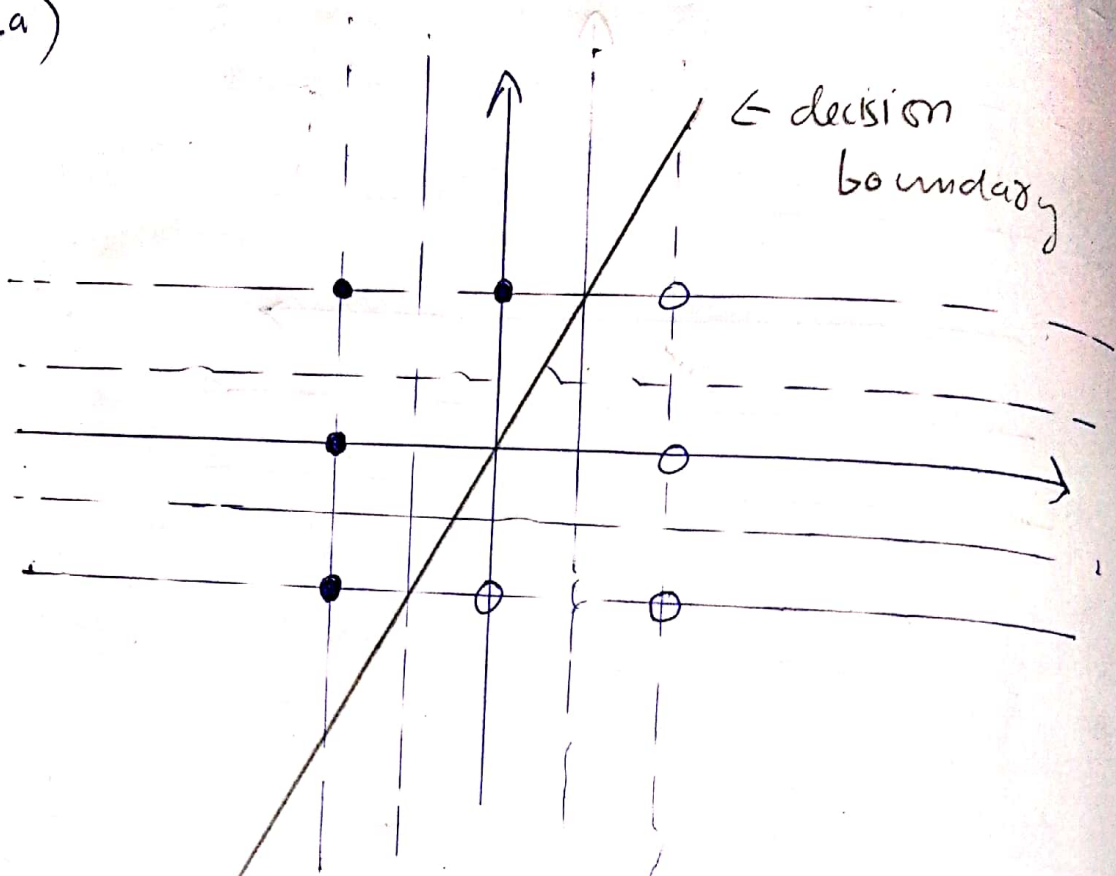 .a)
← decision
boundary